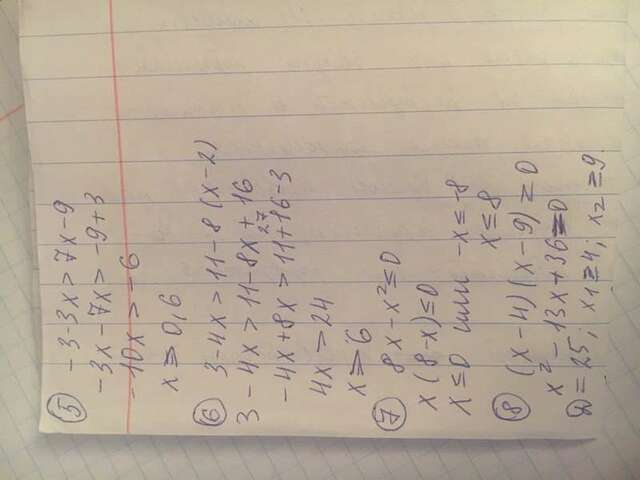 ⑤ -3-3x > 7x-9
-3x - 7x > -9+3
-10x > -6
x ⩾ 0,6
⑥ 3-4x > 11-8(x-2)
3 - 4x > 11-8x + 16
27
-4x+8x > 11+16-3
4x > 24
x ⩾ 6
⑦ 8x - x² ≤ 0
x(8-x) ≤ 0
x ≤ 0 или -x ≤ -8
x ≤ 8
⑧ (x-4)(x-9) ≥ 0
x² - 13x + 36 ≥ 0
D = 25; x₁ ≥ 4; x₂ ≥ 9.